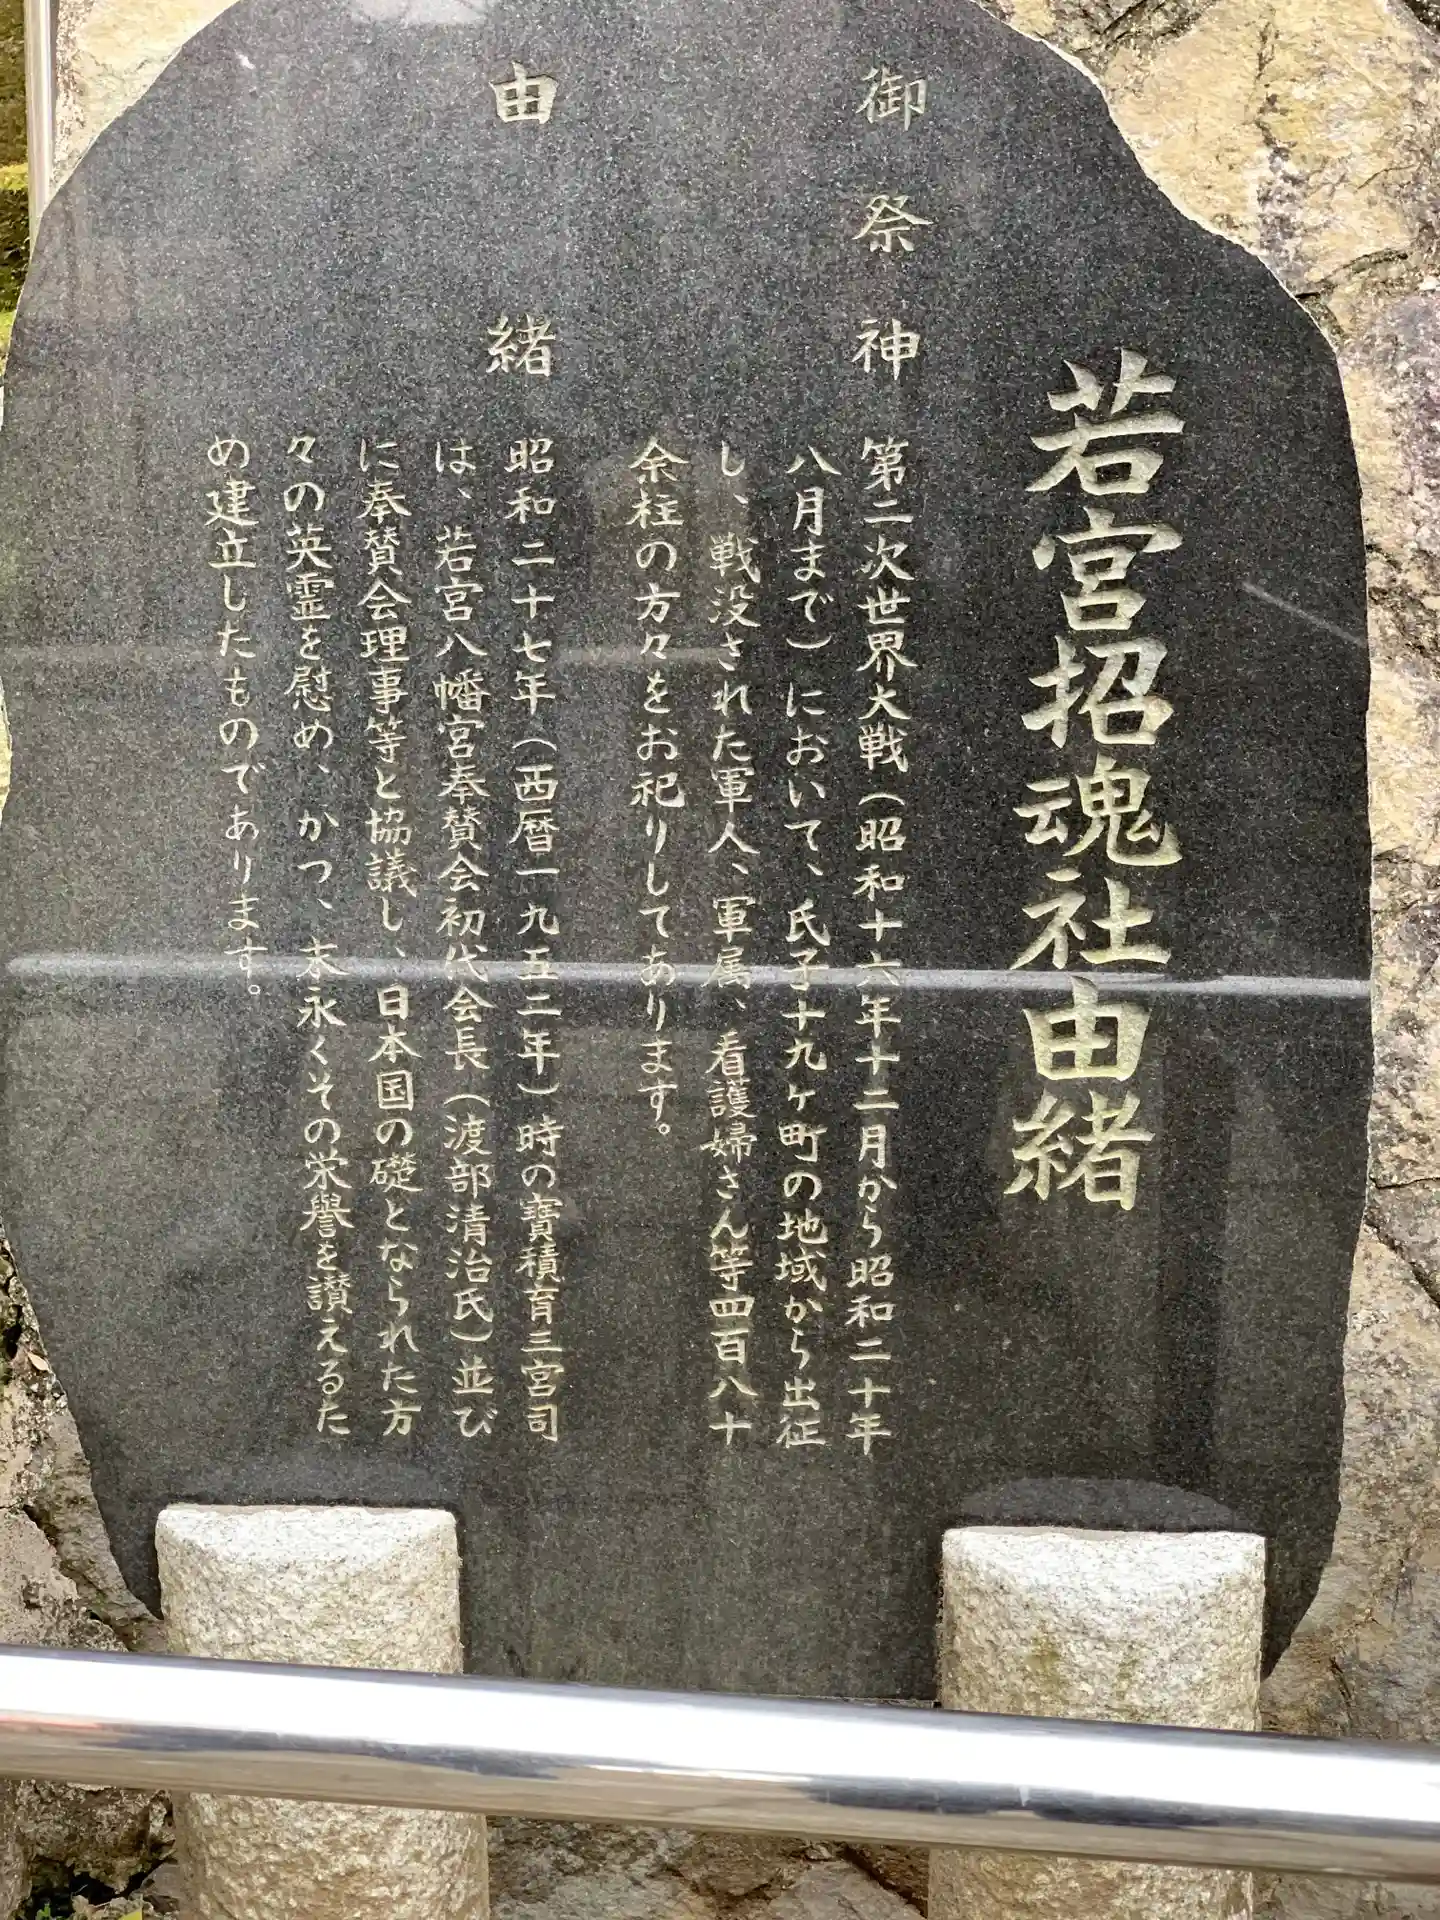 若宮招魂社由緒
御祭神
第二次世界大戦(昭和十六年十二月から昭和二十年
八月まで)において、氏子十九ヶ町の地域から出征
し、戦没された軍人、軍属、看護婦さん等四百八十
余柱の方々をお祀りしてあります。
由緒
昭和二十七年(西暦一九五二年)時の寳積育三宮司
は、若宮八幡宮奉賛会初代会長(渡部清治氏)並び
に奉賛会理事等と協議し、日本国の礎となられた方
々の英霊を慰め、かつ、末永くその栄誉を讃えるた
め建立したものであります。